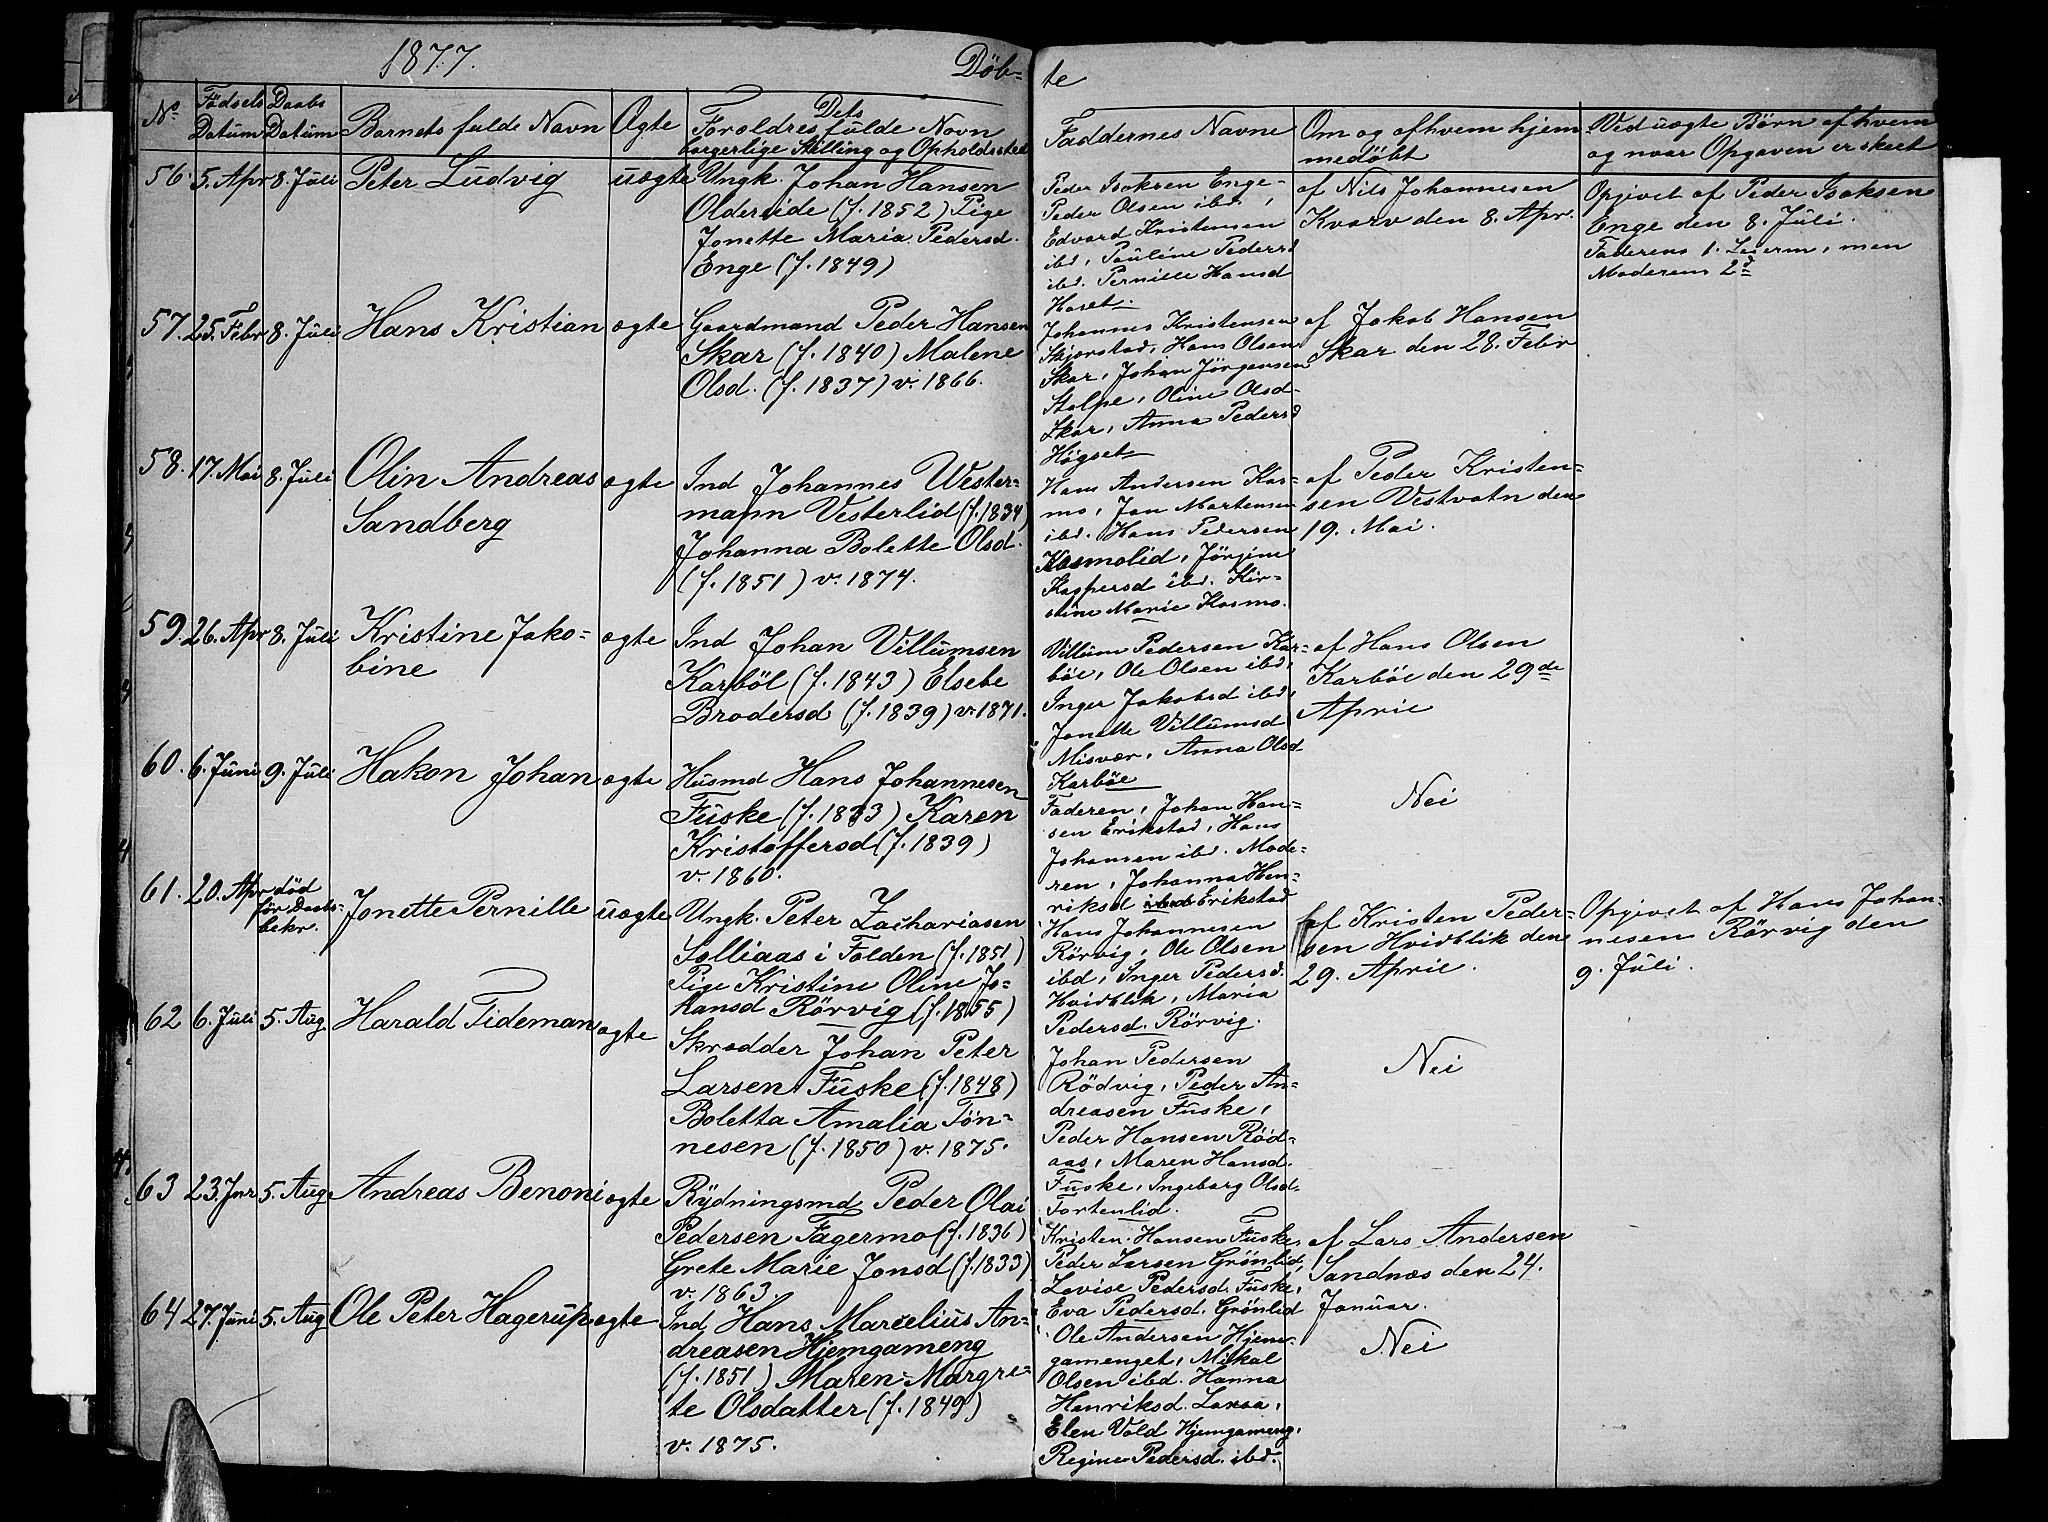 1877.
Döb-
te
No
Födsels Datum
Daabs Datum
Barnets fulde Navn
Ægte
Dets Foræoldres fulde Navn borgerlige Stilling og Opholdssted
Faddernes Navne
Om og af hvem hjemmedöbt
Ved uægte Börn af hvem og naar Opgaven er skeet
56. 5. Apr 8. Juli Peter Ludvig uægte
Ungk. Johan Hansen
Oldereide (f. 1852) Pige
Jonette Maria Pedersd.
Enge (f. 1849)
Peder Isaksen Enge
Peder Olsen ibd,
Edvard Kristensen
ibd, Pauline Pedersd
ibd. Pernille Hansd
Haset.
af Nils Johannesen
Kvarv den 8. Apr.
Opgivet af Peder Isaksen
Enge den 8. Juli.
Faderens 1. Leierm, men
Moderens 2d
57. 25. Febr 8. Juli Hans Kristian ægte
Gaardmand Peder Hansen
Skar (f. 1840) Malene
Olsd. (f. 1837) v. 1866.
Johannes Kristensen
Skjerstad, Hans Olsen
Skar, Johan Jörgensen
Stolpe, Oline Olsd
Skar, Anna Pedersd
Högset
af Jakob Hansen
Skar den 28. Febr
58. 17. Mai 8. Juli Olin Andreas ægte
Sandberg
Ind Johannes Wester-
mann Vesterlid (f. 1834)
Johanna Bolette Olsd.
(f. 1851) v. 1874.
Hans Andersen Kos-
mo, Jan Mortensen
ibd. Hans Pedersen
Kosmolid, Jörgine
Kaspersd ibd. Kir-
stine Marie Kosmo.
af Peder Kristen-
sen Vestvatn den
19. Mai.
59. 26. Apr 8. Juli Kristine Jako- ægte
bine
Ind Johan Villumsen
Karböl (f. 1843) Elsebe
Brodersd (f. 1839) v. 1871.
Villum Pedersen Kar-
böe, Ole Olsen ibd,
Inger Jakobsd ibd,
Jonette Villumsd
Misvær, Anna Olsd
Karböe
af Hans Olsen
Karböe den 29de
April
60. 6. Juni 9. Juli Hakon Johan ægte
Husmd Hans Johannesen
Fuske (f. 1833) Karen
Kristoffersd (f. 1839)
v. 1860.
Faderen, Johan Han-
sen Erikstad, Hans
Johansen ibd. Mode-
ren, Johanna Hen-
riksd Erikstad
Nei
61. 20. Apr död för Daabs- bekr. Jonette Pernille uægte
Ungk. Peter Zachariasen
Solliaas i Folden (f. 1851)
Pige Kristine Oline Jo-
hansd Rörvig (f. 1855)
Hans Johannesen
Rörvig, Ole Olsen
ibd, Inger Pedersd.
Hvidblik, Maria
Pedersd. Rörvig.
af Kristen Peder-
sen Hvidblik den
29. April.
Opgivet af Hans Johan-
nesen Rörvig den
9. Juli.
62 6. Juli 5. Aug. Harald Tideman ægte
Skrædder Johan Peter
Larsen Fuske (f. 1848)
Boletta Amalia Tön-
nesen (f. 1850) v. 1875.
Johan Pedersen
Rödvig, Peder An-
dreasen Fuske,
Peder Hansen Röd-
aas, Maren Hansd.
Fuske, Ingeborg Olsd.
Tortenlid.
Nei
63 23. Jnr 5. Aug Andreas Benoni ægte
Rydningsmd Peder Olai
Pedersen Fagermo (f. 1836)
Grete Marie Jonsd (f. 1833)
v. 1863.
Kristen Hansen Fuske,
Peder Larsen Grönlid,
Lovise Pedersd. Fuske,
Eva Pedersd. Grönlid
af Lars Andersen
Sandnæs den 24.
Januar.
64 27. Juni 5. Aug Ole Peter Hagerup ægte
Ind Hans Marcelius An-
dreasen Hjemgameng
(f. 1851) Maren Margre-
te Olsdatter (f. 1849)
v. 1875.
Ole Andersen Hjem-
gamenget, Mikal
Olsen ibd. Hanna
Henriksd.
Elen Vold Hjemgameng,
Regine Pedersd. ibd.
Nei